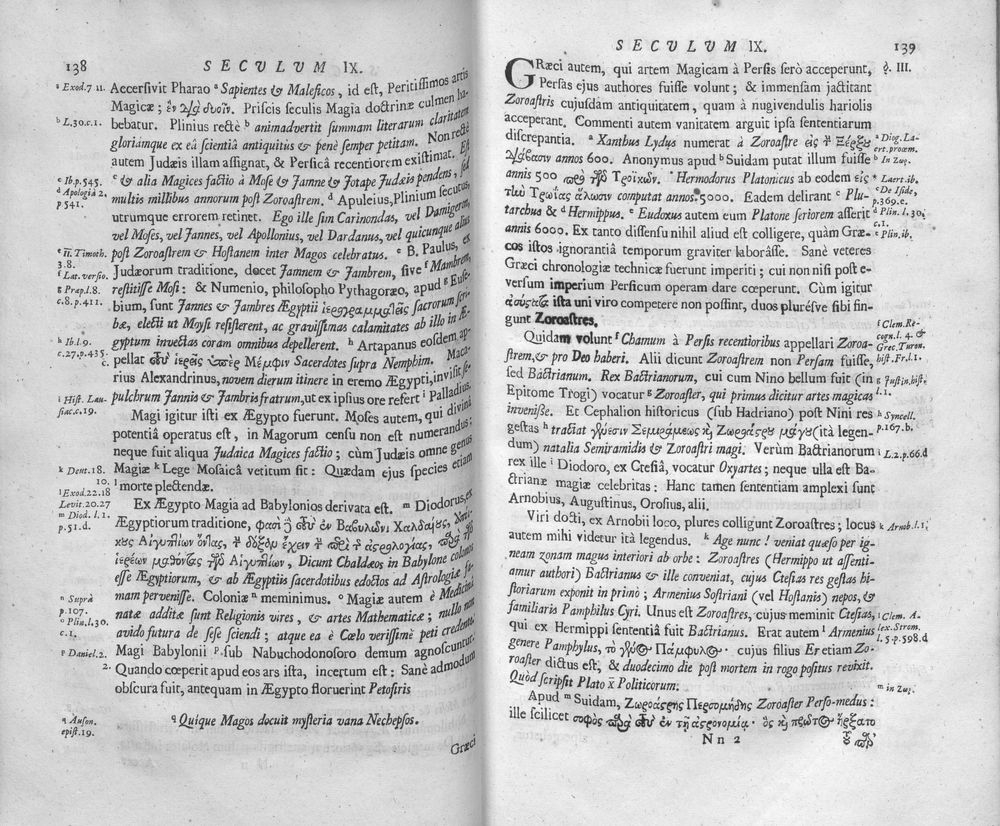 138 SECULUM IX.
a Exod.7 11.
b L.30.c.1.
c Ib.p.545.
d Apologiâ 2.
p.541.
e II. Timoth.
3.8.
f Lat. versio.
g Præp.l.8.
c.8.p.411.
h Ib.l.9.
c.27.p.435.
i Hist. Lau-
siac.c.19.
k Deut.18.
10.
l Exod.22.18
Levit.20.27
m Diod.l.1.
p.51.d.
n Suprà
p.107.
o Plin.l.30.
c.1.
p Daniel.2.
2.
q Auson.
epist.19.
Accersivit Pharao a Sapientes & Maleficos, id est, Peritissimos artis
Magicæ; Priscis seculis Magia doctrinæ culmen ha-
bebatur. Plinius rectè b animadvertit summam literarum claritatem
gloriamque ex eâ scientiâ antiquitùs & penè semper petitam. Non rectè
autem Judæis illam assignat, & Persicâ recentiorem existimat. Est
c & alia Magices factio à Mose & Jamne & Jotape Judæis pendens, sed
multis millibus annorum post Zoroastrem. d Apuleius, Plinium secutus,
utrumque errorem retinet. Ego ille sim Carinondas, vel Damigeron,
vel Moses, vel Jannes, vel Apollonius, vel Dardanus, vel quicunque alius
post Zoroastrem & Hostanem inter Magos celebratus. e B. Paulus, ex
Judæorum traditione, docet Jamnem & Jambrem, sive f Mambrem,
restitisse Mosi: & Numenio, philosopho Pythagoræo, apud g Euse-
bium, sunt Jannes & Jambres Ægyptii ἱερογραμματεῖς sacrorum scri-
bæ, electi ut Moysi resisterent, ac gravissimas calamitates ab illo in Æ-
gyptum invectas coram omnibus depellerent. h Artapanus eosdem ap-
pellat τοὺς ἱερεῖς ὑπὲρ Μέμφιν Sacerdotes supra Memphim. Maca-
rius Alexandrinus, novem dierum itinere in eremo Ægypti, invisit se-
pulchrum Jannis & Jambris fratrum, ut ex ipsius ore refert i Palladius.
Magi igitur isti ex Ægypto fuerunt. Moses autem, qui divinâ
potentiâ operatus est, in Magorum censu non est numerandus;
neque fuit aliqua Judaica Magices factio; cùm Judæis omne genus
Magiæ k Lege Mosaicâ vetitum sit: Quædam ejus species etiam
l morte plectendæ.
Ex Ægypto Magia ad Babylonios derivata est. m Diodorus, ex
Ægyptiorum traditione, φασὶ δὲ τοὺς ἐν Βαβυλῶνι Χαλδαίους, ἀποί-
κους Αἰγυπτίων ὄντας, τὴν δόξαν ἔχειν τὴν περὶ τῆς ἀστρολογίας, παρὰ τῶν
ἱερέων μαθόντας τῶν Αἰγυπτίων, Dicunt Chaldæos in Babylone colonos
esse Ægyptiorum, & ab Ægyptiis sacerdotibus edoctos ad Astrologiæ fa-
mam pervenisse. Coloniæ n meminimus. o Magiæ autem è Medicinâ
natæ additæ sunt Religionis vires, & artes Mathematicæ; nullo non
avido futura de sese sciendi; atque ea è Cœlo verissimè peti credente.
Magi Babylonii p sub Nabuchodonosoro demum agnoscuntur.
Quando cœperit apud eos ars ista, incertum est: Sanè admodum
obscura fuit, antequam in Ægypto floruerint Petosiris
q Quique Magos docuit mysteria vana Nechepsos.
Græci
SECULUM IX. 139
GRæci autem, qui artem Magicam à Persis serò acceperunt,
Persas ejus authores fuisse volunt; & immensam jactitant
Zoroastris cujusdam antiquitatem, quam à nugivendulis hariolis
acceperant. Commenti autem vanitatem arguit ipsa sententiarum
discrepantia. a Xanthus Lydus numerat à Zoroastre εἰς τὴν Ξέρξου
διάβασιν annos 600. Anonymus apud b Suidam putat illum fuisse
annis 500 πρὸ τῶν Τρωϊκῶν. c Hermodorus Platonicus ab eodem εἰς
τὴν Τροίας ἅλωσιν computat annos 5000. Eadem delirant c Plu-
tarchus & d Hermippus. e Eudoxus autem eum Platone seriorem asserit
annis 6000. Ex tanto dissensu nihil aliud est colligere, quàm Græ-
cos istos ignorantiâ temporum graviter laborâsse. Sanè veteres
Græci chronologiæ technicæ fuerunt imperiti; cui non nisi post e-
versum imperium Persicum operam dare cœperunt. Cùm igitur
ista uni viro competere non possint, duos pluresve sibi fin-
gunt Zoroastres.
Quidam volunt f Chamum à Persis recentioribus appellari Zoroa-
strem, & pro Deo haberi. Alii dicunt Zoroastrem non Persam fuisse,
sed Bactrianum. Rex Bactrianorum, cui cum Nino bellum fuit (in
Epitome Trogi) vocatur g Zoroaster, qui primus dicitur artes magicas
invenisse. Et Cephalion historicus (sub Hadriano) post Nini res
gestas h tractat γένεσιν Σεμιράμεως καὶ Ζωροάστρου μάγου (ità legen-
dum) natalia Semiramidis & Zoroastri magi. Verùm Bactrianorum
rex ille i Diodoro, ex Ctesiâ, vocatur Oxyartes; neque ulla est Ba-
ctrianæ magiæ celebritas: Hanc tamen sententiam amplexi sunt
Arnobius, Augustinus, Orosius, alii.
Viri docti, ex Arnobii loco, plures colligunt Zoroastres; locus
autem mihi videtur ità legendus. k Age nunc! veniat quæso per ig-
neam zonam magus interiori ab orbe: Zoroastres (Hermippo ut assenti-
amur authori) Bactrianus & ille conveniat, cujus Ctesias res gestas hi-
storiarum exponit in primo; Armenius Sostriani (vel Hostanis) nepos, &
familiaris Pamphilus Cyri. Unus est Zoroastres, cujus meminit Ctesias,
qui ex Hermippi sententiâ fuit Bactrianus. Erat autem l Armenius
genere Pamphylus, τὸ γένος Πάμφυλος· cujus filius Er etiam Zo-
roaster dictus est, & duodecimo die post mortem in rogo positus revixit.
Quod scripsit Plato x Politicorum:
Apud m Suidam, Ζωροάστρης Περσομήδης Zoroaster Perso-medus:
ille scilicet σοφὸς παρὰ τοὺς ἐν τῇ ἀστρονομίᾳ· ὃς καὶ πρῶτος ἤρξατο
Nn 2
τοῦ παρ'
§. III.
a Diog. La-
ert. proœm.
b In Ζωρ.
* Laert. ib.
c De Iside,
p.369.c.
d Plin.l.30.
c.1.
e Plin. ib.
f Clem. Re-
cogn.l.4. &
Grec. Turon.
hist.Fr.l.1.
g Justin. hist.
l.1.
h Syncell.
p.167.b.
i L.2.p.66.d
k Arnob.l.1.
l Clem. A-
lex. Strom.
l.5.p.598.d
m in Ζωρ.